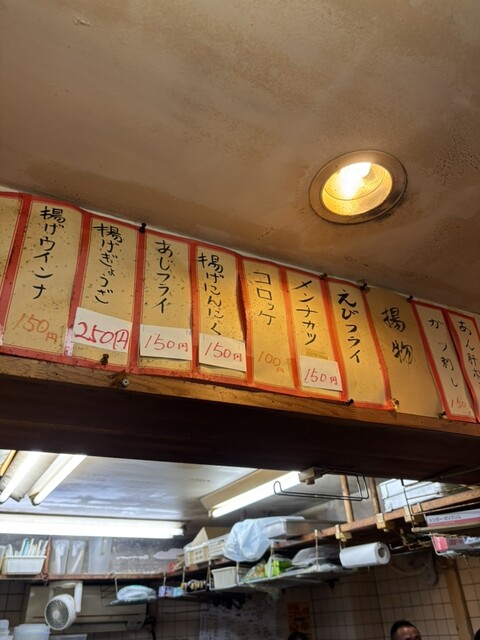 ガツ刺し
150
揚物
えびフライ
メンチカツ
150円
コロッケ
100円
揚げにんにく
150円
あじフライ
150円
揚げぎょうざ
250円
揚げウインナ
150円